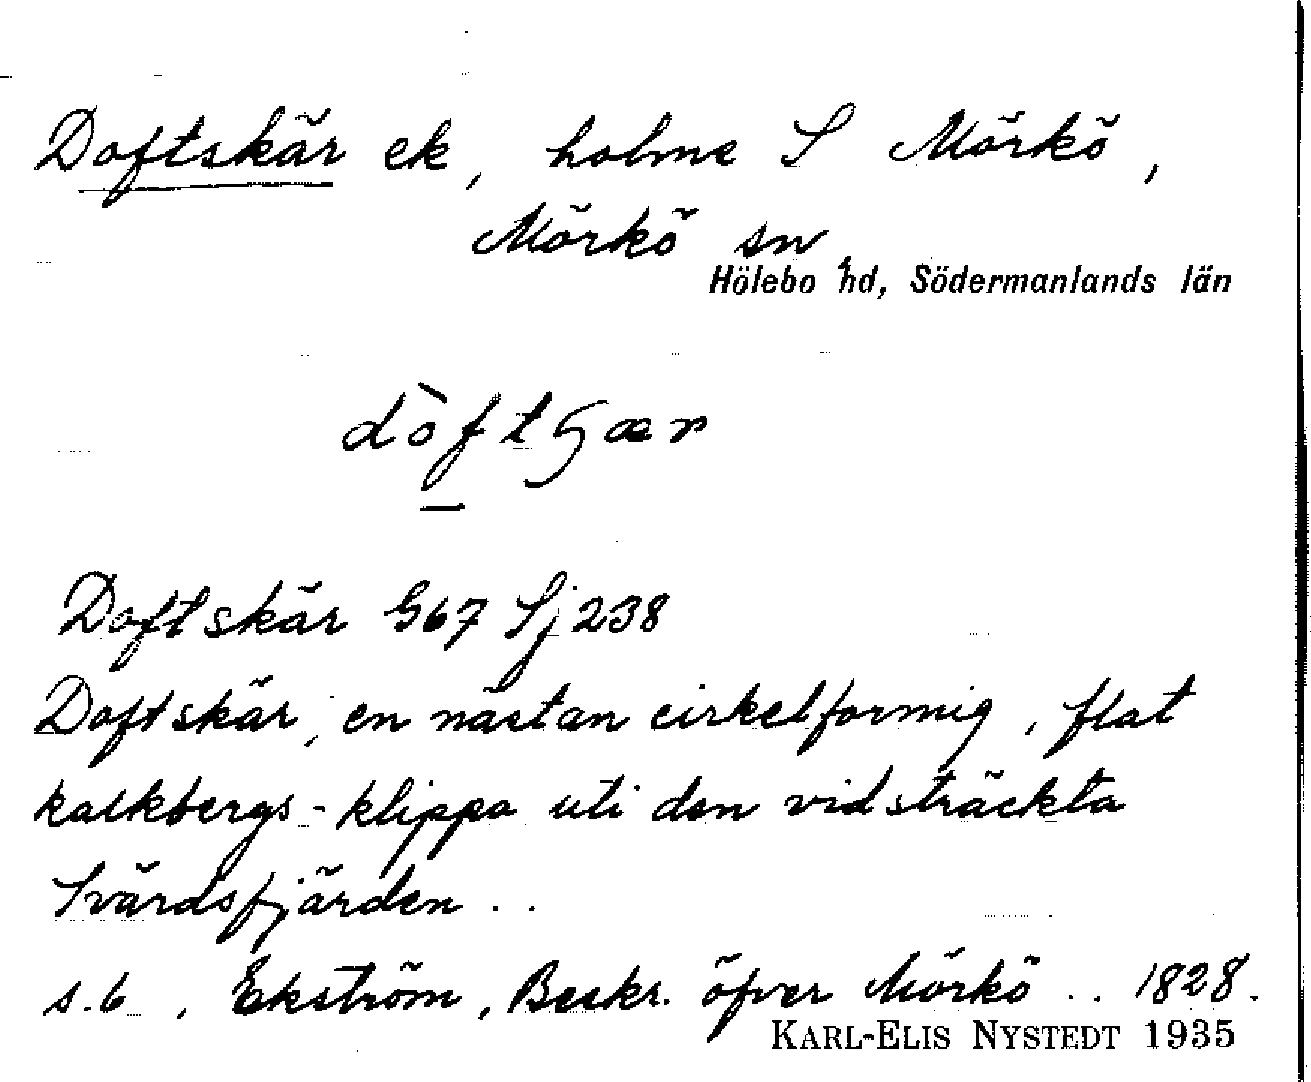 Doftskär ek, holme S Mörkö,
Mörkö sn,
Hölebo hd, Södermanlands län
dòftʃær
Doftskär G67 Sj 238
Doftskär, en nästan cirkelformig, flat
kalkbergs-klippa uti den vidsträckta
Svärdsfjärden . .
s. 6, Ekström, Beskr. öfver Mörkö . . 1828.
KARL-ELIS NYSTEDT 1935